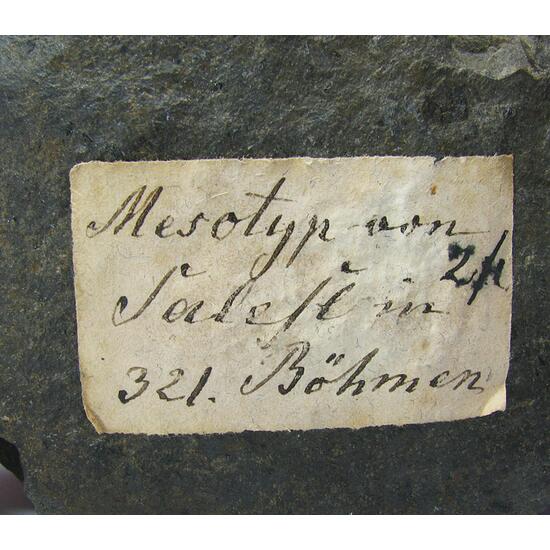 Mesotyp von
Salesl in
321. Böhmen